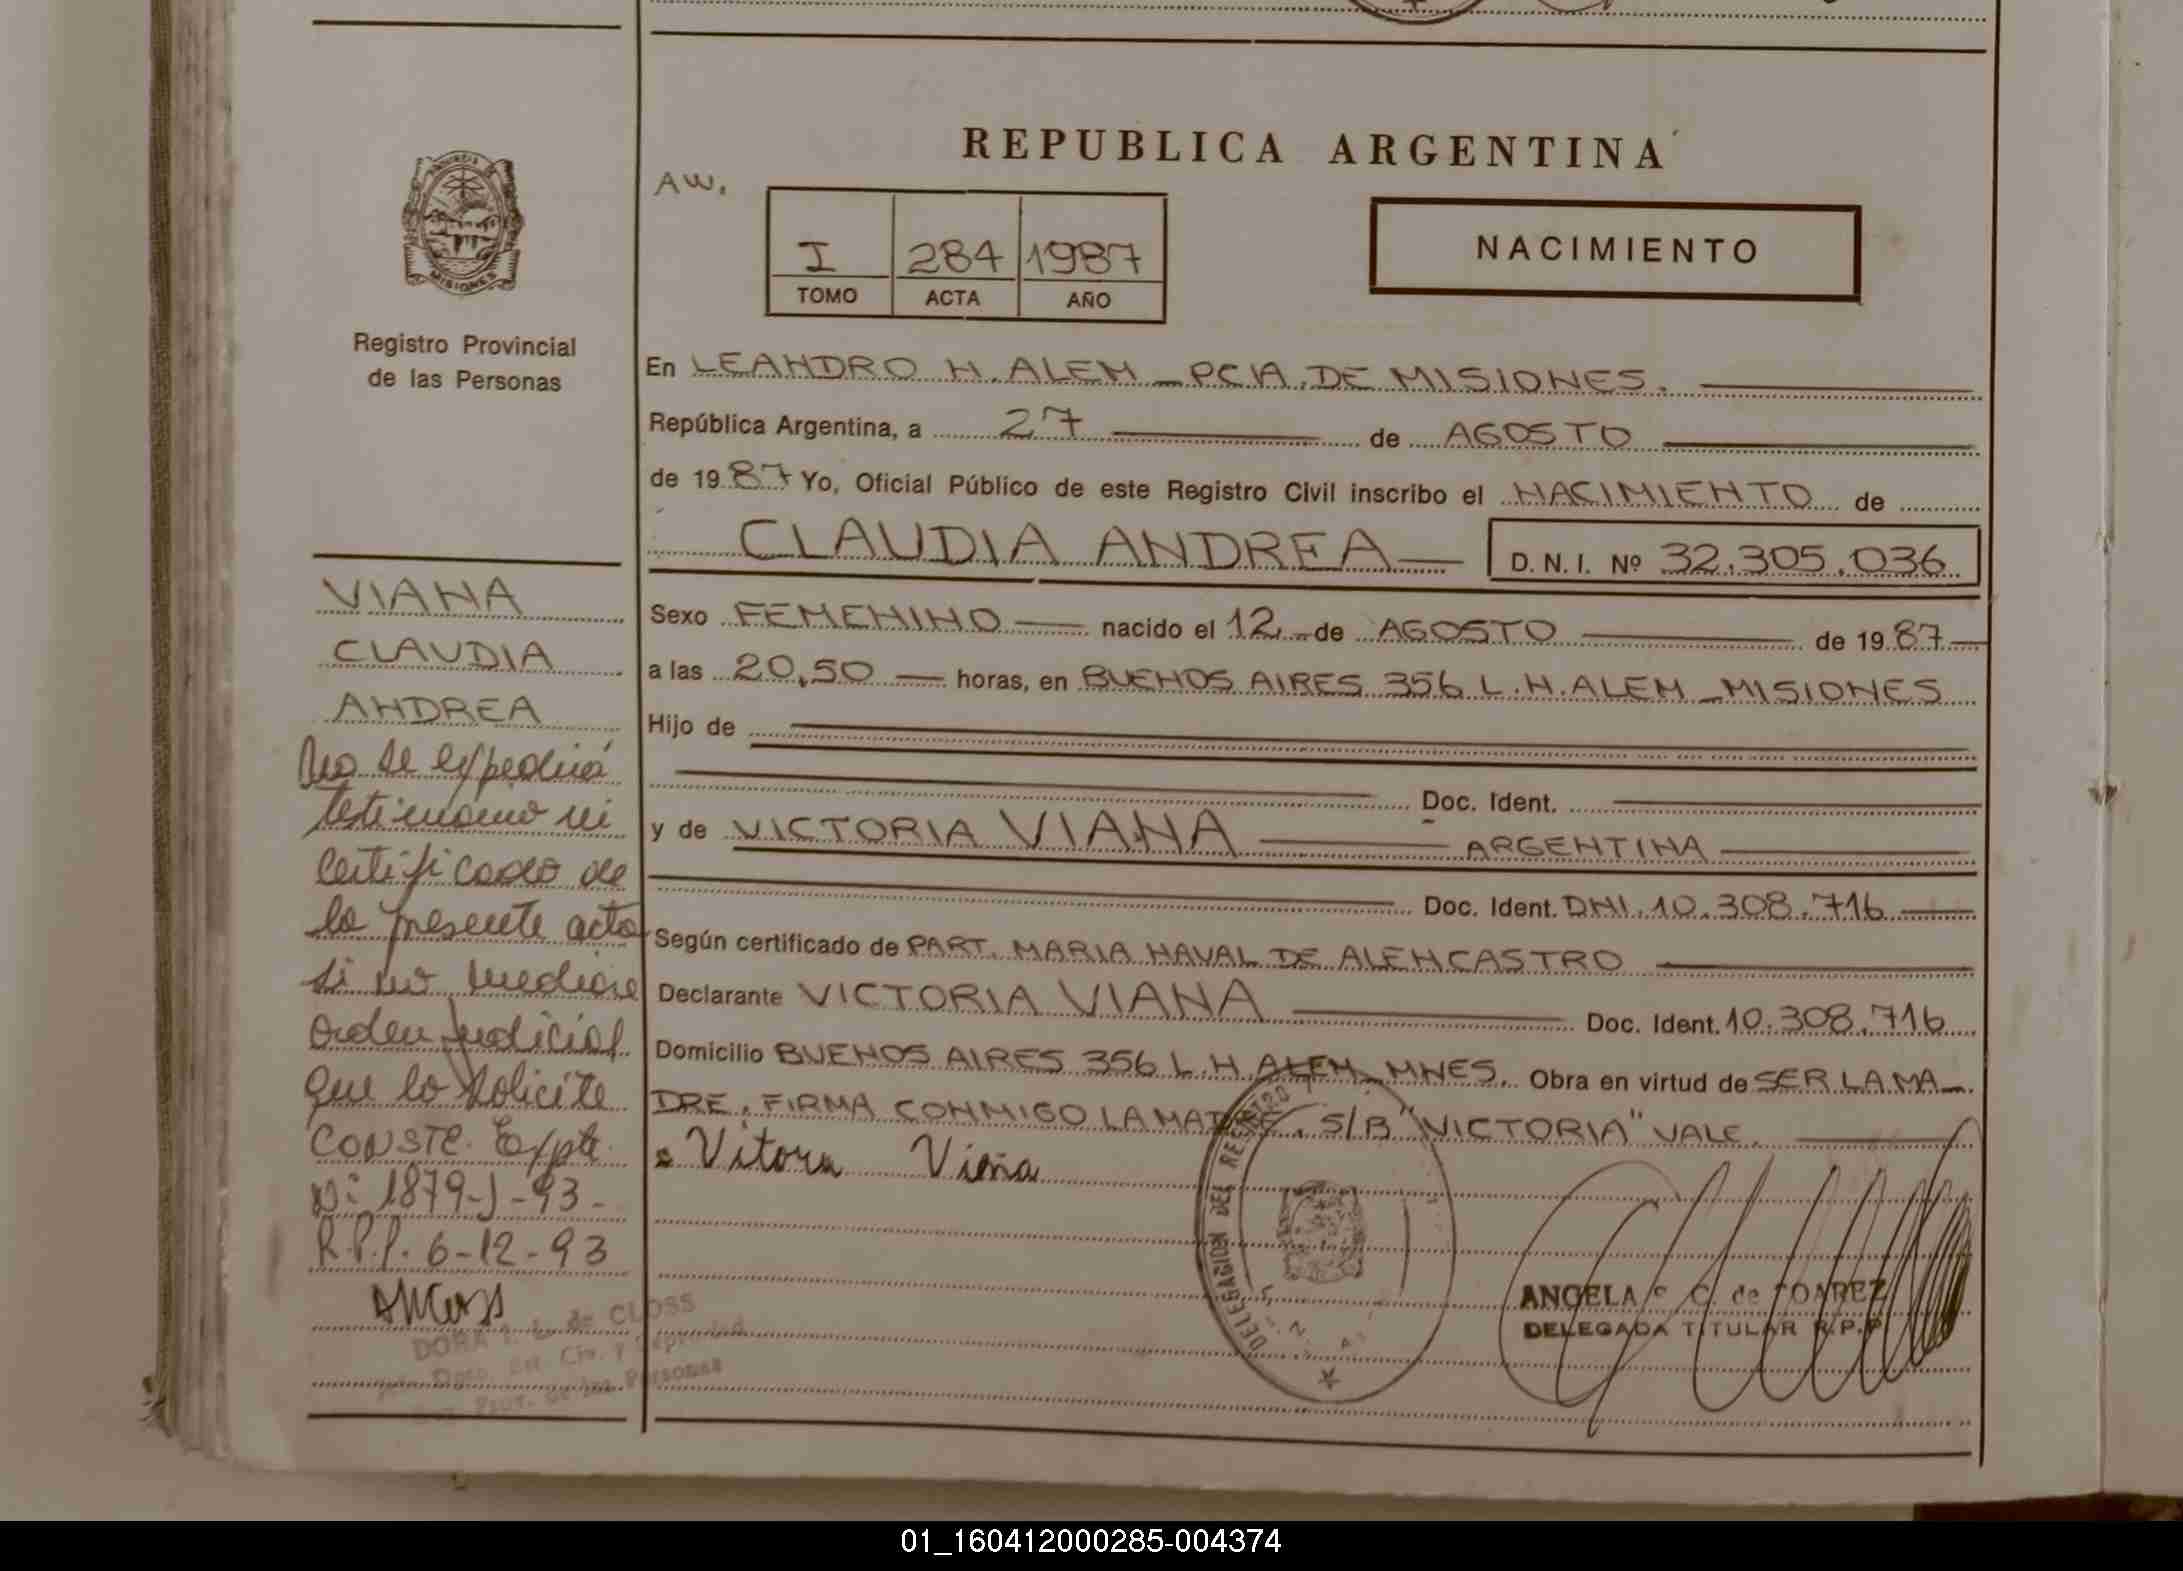 REPUBLICA ARGENTINA
AW.
I 284 1987
TOMO ACTA AÑO
NACIMIENTO
MISIONES
Registro Provincial
de las Personas
En LEANDRO N. ALEM - PCIA. DE MISIONES.
República Argentina, a 27 de AGOSTO
de 1987 Yo, Oficial Público de este Registro Civil inscribo el NACIMIENTO de
CLAUDIA ANDREA D. N. I. Nº 32.305.036
Sexo FEMENINO nacido el 12 de AGOSTO de 1987
a las 20,50 horas, en BUENOS AIRES 356 L.N. ALEM - MISIONES
Hijo de
Doc. Ident.
y de VICTORIA VIANA ARGENTINA
Doc. Ident. DNI. 10.308.716
Según certificado de PART. MARIA NAVAL DE ALENCASTRO
Declarante VICTORIA VIANA Doc. Ident. 10.308.716
Domicilio BUENOS AIRES 356 L.N. ALEM - MNES. Obra en virtud de SER LA MA-
DRE. FIRMA CONMIGO LA MADRE. S/B "VICTORIA" VALE.
Vitora Viana
DELEGACION DEL REGISTRO
ANGELA C. de SOAREZ
DELEGADA TITULAR R.P.P.
VIANA
CLAUDIA
ANDREA
No se expedirá
testimonio ni
certificado de
la presente acta
si no mediare
orden judicial
que lo solicite
CONSTE. Expte.
Nº 1879-J-93-
R.P.P. 6-12-93
DORA de CLOSS
Prov. de las Personas
01_160412000285-004374